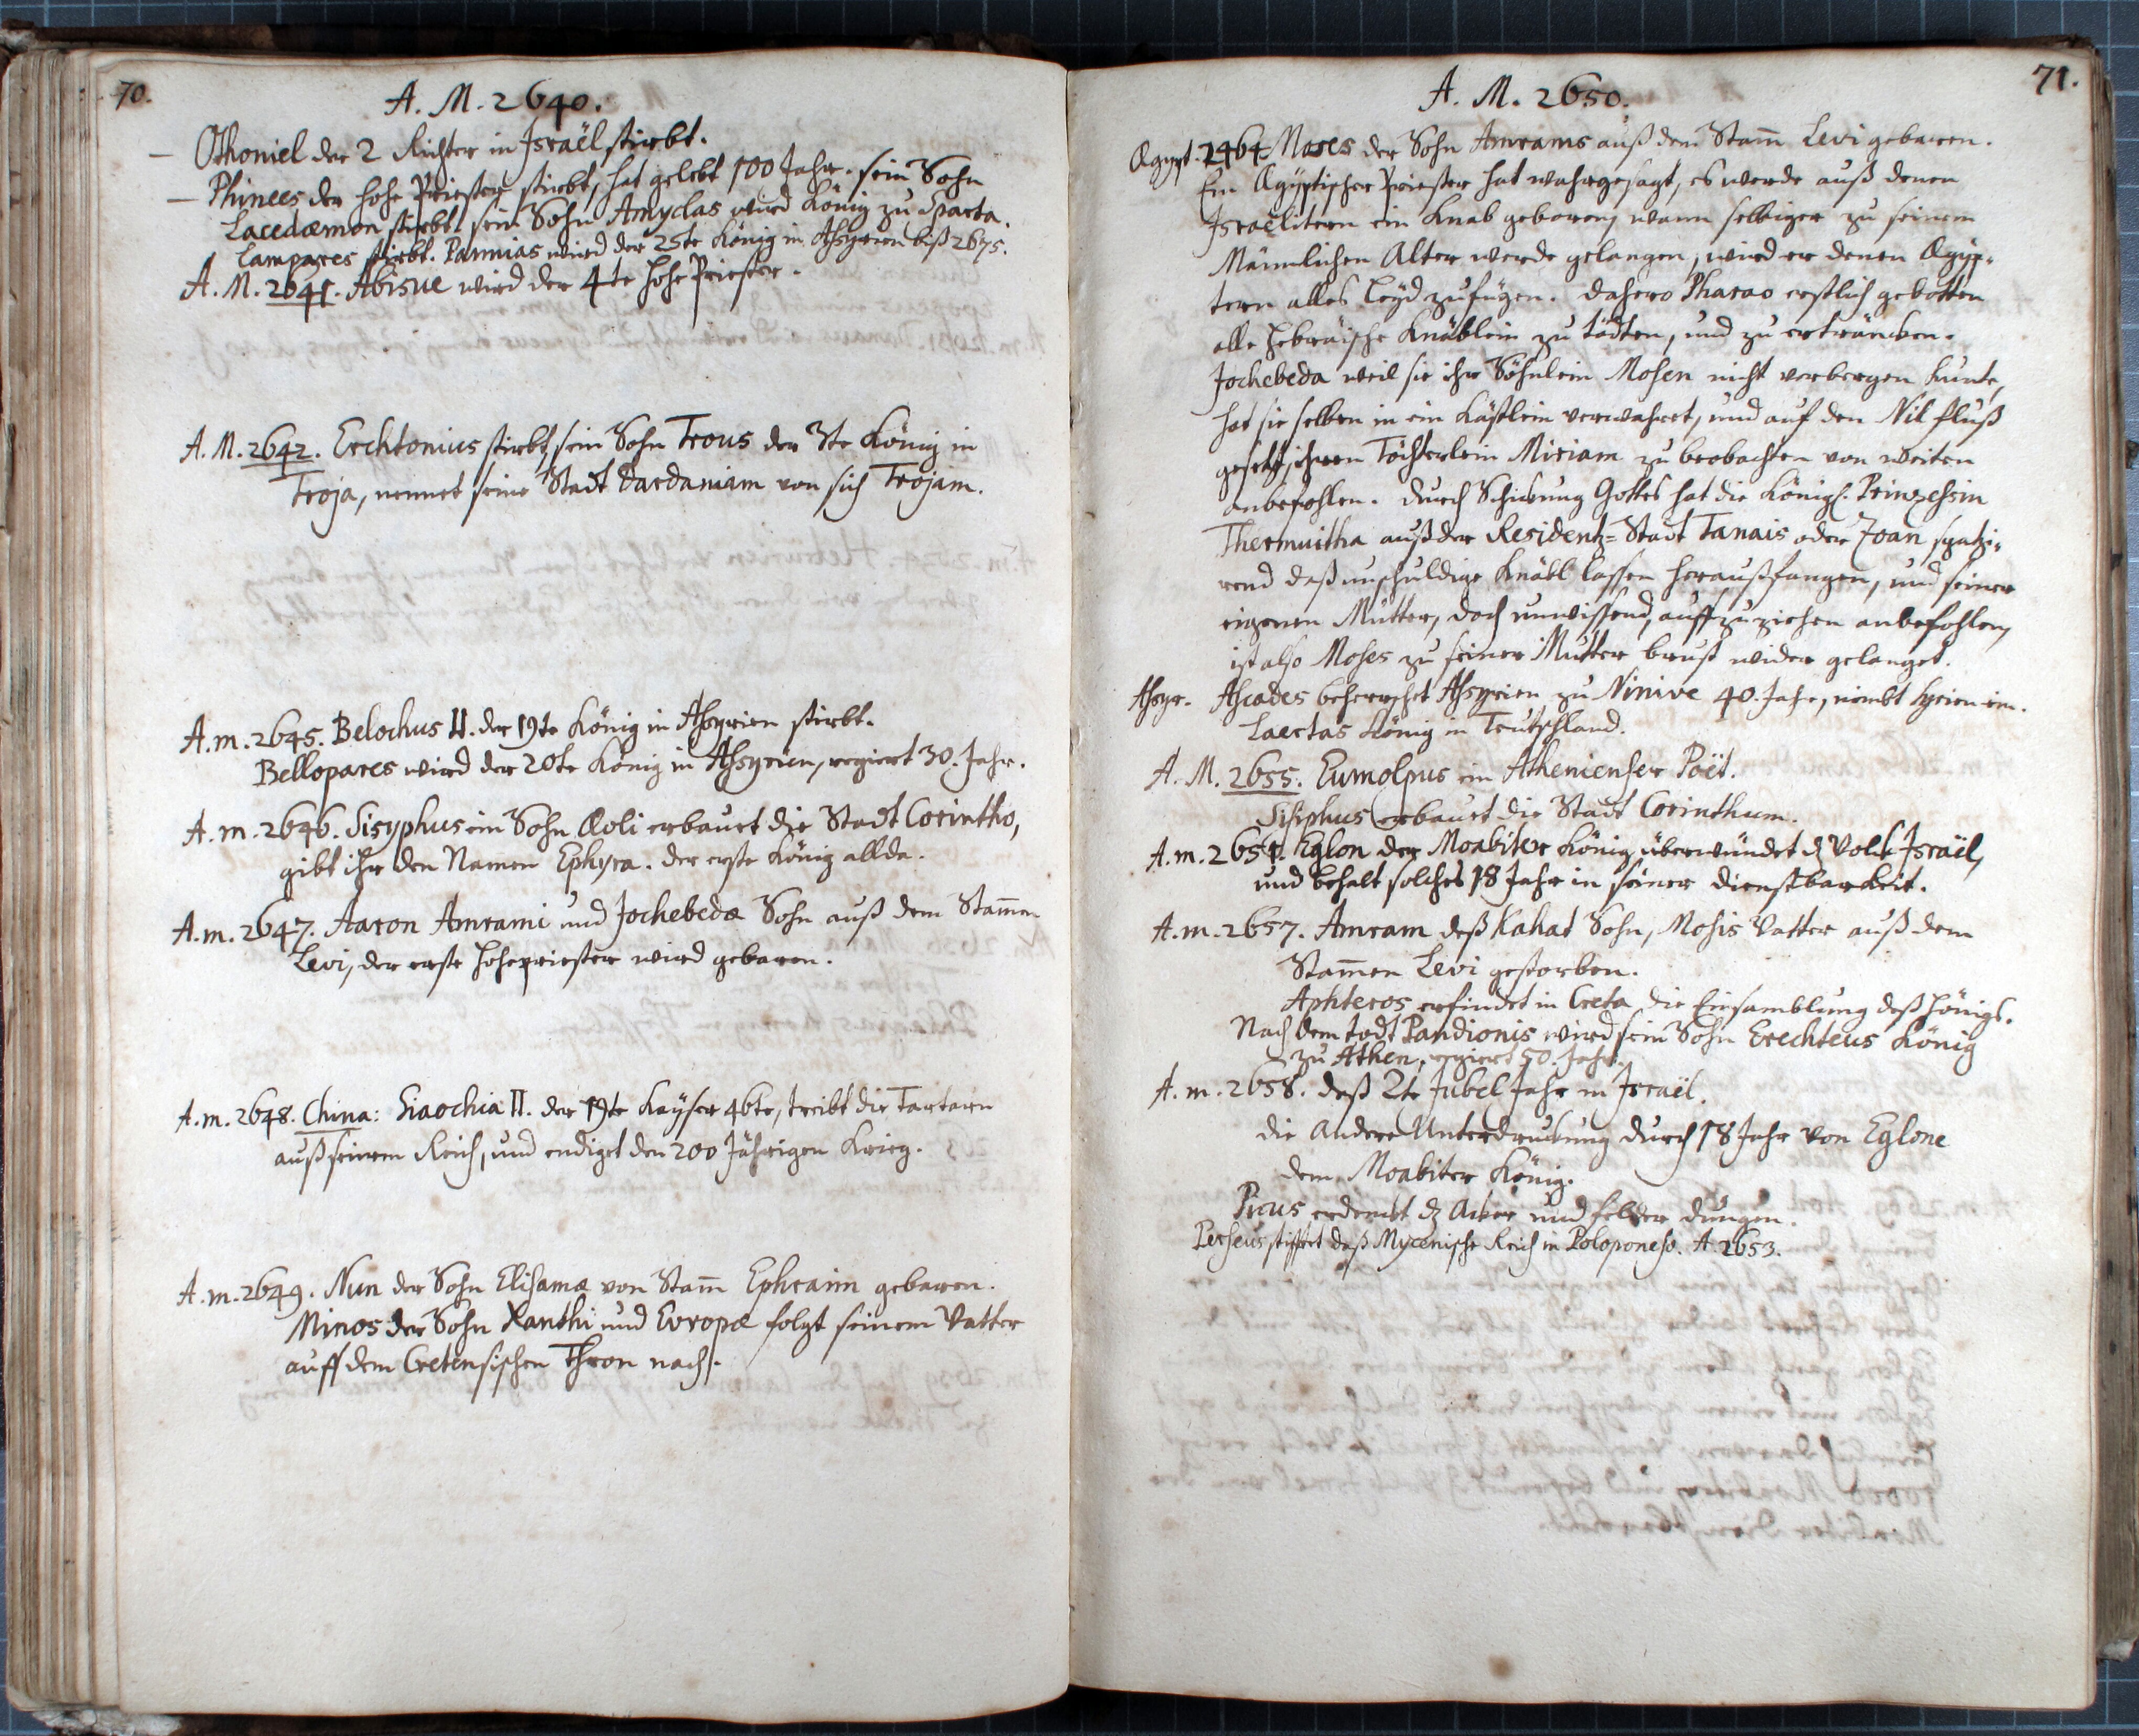 70.
A. M. 2640.
– Othoniel der 2 Richter in Israël stirbt.
– Phinees der hohe Priester stirbt, hat gelebt 100 Jahr. sein Sohn
Lacedæmon stirbt. sein Sohn Amyclas wird König zu Sparta.
Lampares stirbt. Pannias wird der 25te König in Assyrien biß 2675.
A. M. 2641. Abisue wird der 4te hohe Priester.
A. M. 2642. Erchtonius stirbt, sein Sohn Trous der 3te König in
Troja, nennet seine Stadt Dardaniam von sich Trojam.
A. m. 2645. Belochus II. der 19te König in Assyrien stirbt.
Bellopares wird der 20te König in Assyrien, regiert 30. Jahr.
A. m. 2646. Sisyphus ein Sohn Æoli erbauet die Stadt Corintho,
gibt ihr den Namen Ephyra. der erste König allda.
A. m. 2647. Aaron Amrami und Jochebedæ Sohn auß dem Stam̄en
Levi, der erste Hohepriester wird gebaren.
A. m. 2648. China: Siaochia II. der 19te Kayser 46te, treibt die Tartarn
auß seinem Reich, und endiget den 200 Jährigen Krieg.
A. m. 2649. Nun der Sohn Elisamæ von Stam̄ Ephraim gebaren.
Minos der Sohn Xanthi und Evropæ folgt seinem Vatter
auff dem Cretensischen Thron nach.
71.
A. M. 2650.
Ægypt. 2464 Moses der Sohn Amrams auß dem Stam̄ Levi gebaren.
Ein Ægyptischer Priester hat wahrgesagt, es werde auß denen
Israelitern ein Knab geboren, wann selbiger zu seinem
Männlichen Alter werde gelangen, wird er denen Ægyp-
tern alles Leyd zufügen. dahero Pharao erstlich gebotten
alle Hebräische Knäblein zu tödten, und zu ertrāncken.
Jochebeda weil sie ihr Söhnlein Mosen nicht verbergen kunte,
hat sie selben in ein Kästlein verwahret, und auf den Nil fluß
gesetzt, ihrem Töchterlein Miriam zu beobachten von weiten
anbefohlen. durch Schickung Gottes hat die Königl. Prinzessin
Thermuitha auß der Residentz-Stadt Tanais oder Zoan spatzi-
rend daß unschuldige Knäbl lassen heraußfangen, und seiner
eigenen Mütter, doch unwissend, auffzuziehen anbefohlen,
ist also Moses zu seiner Mutter brust wider gelanget.
Assyr. Ascades beherrschet Assyrien zu Ninive 40. Jahr, nimbt Syrien ein.
Laertas König in Teutschland.
A. M. 2655. Eumolpus ein Athenienser Poët.
Sisiphus erbauet die Stadt Corinthum.
A. m. 2651. Eglon der Moabiter König überwündet dz Volck Israël,
und behalt solches 18 Jahr in seiner dienstbarkeit.
A. m. 2657. Amram deß Kahat Sohn, Mosis Vatter auß dem
Stam̄en Levi gestorben.
Aphteros erfindet in Creta die Einsamblung deß Hönigs.
Nach dem todt Pandionis wird sein Sohn Erechteus König
zu Athen, regiert 50. Jahr.
A. m. 2658. deß 2te Jubel Jahr in Israël.
die andere Unterdruckung durch 18 Jahr von Eglone
dem Moabiter König.
Picus erdenckt dz Acker und felder dungen.
Perseus stifftet daß Mycenische Reich in Peloponeso. A. 2653.